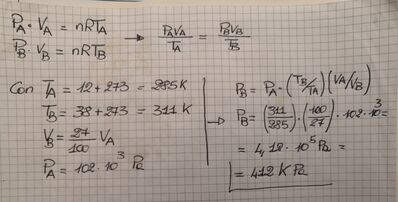 P_A · V_A = nRT_A
P_B · V_B = nRT_B
→ P_A V_A / T_A = P_B V_B / T_B
Con T_A = 12 + 273 = 285 K
T_B = 38 + 273 = 311 K
V_B = 27/100 V_A
P_A = 102 · 10^3 Pa
P_B = P_A · (T_B/T_A) (V_A/V_B)
→ P_B = (311/285) · (100/27) · 102 · 10^3 =
= 4,12 · 10^5 Pa =
= 412 K Pa